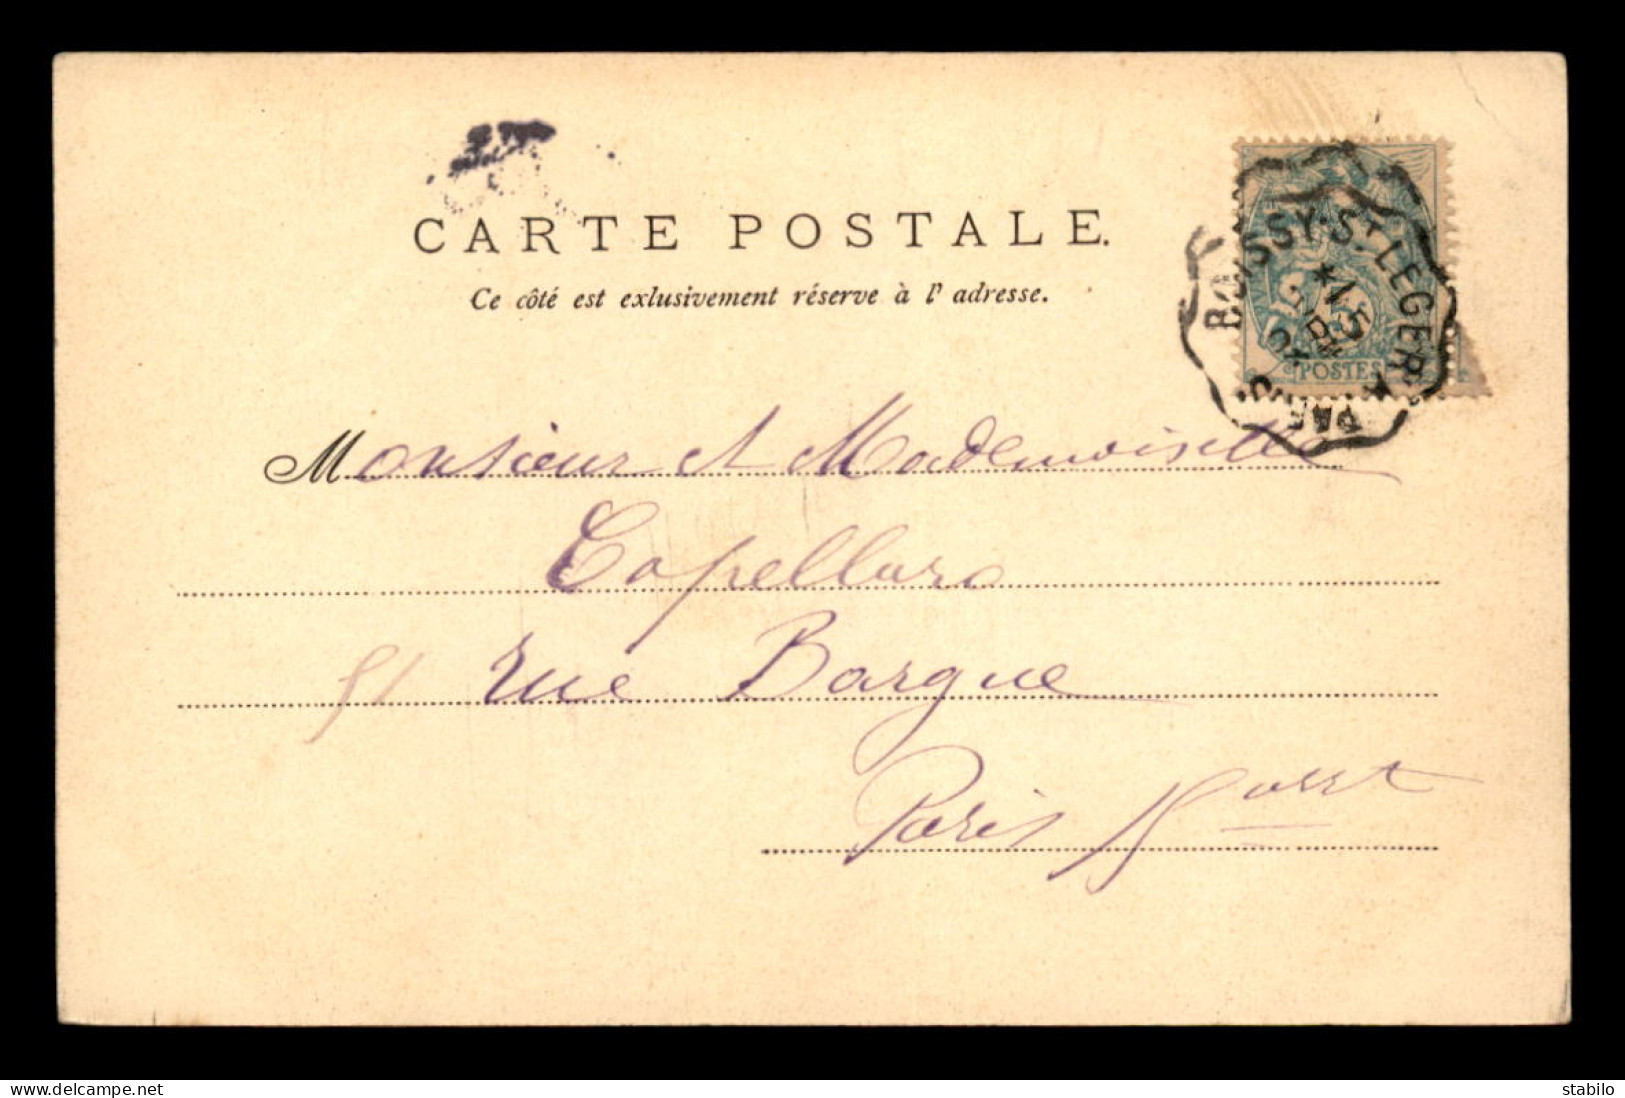 CARTE POSTALE.
Ce côté est exlusivement réserve à l' adresse.
BOISSY-St LEGER A PARIS
POSTES
Monsieur et Mademoiselle
Capellaro
51 rue Bargue
Paris 15 arrt
www.delcampe.net
stabilo